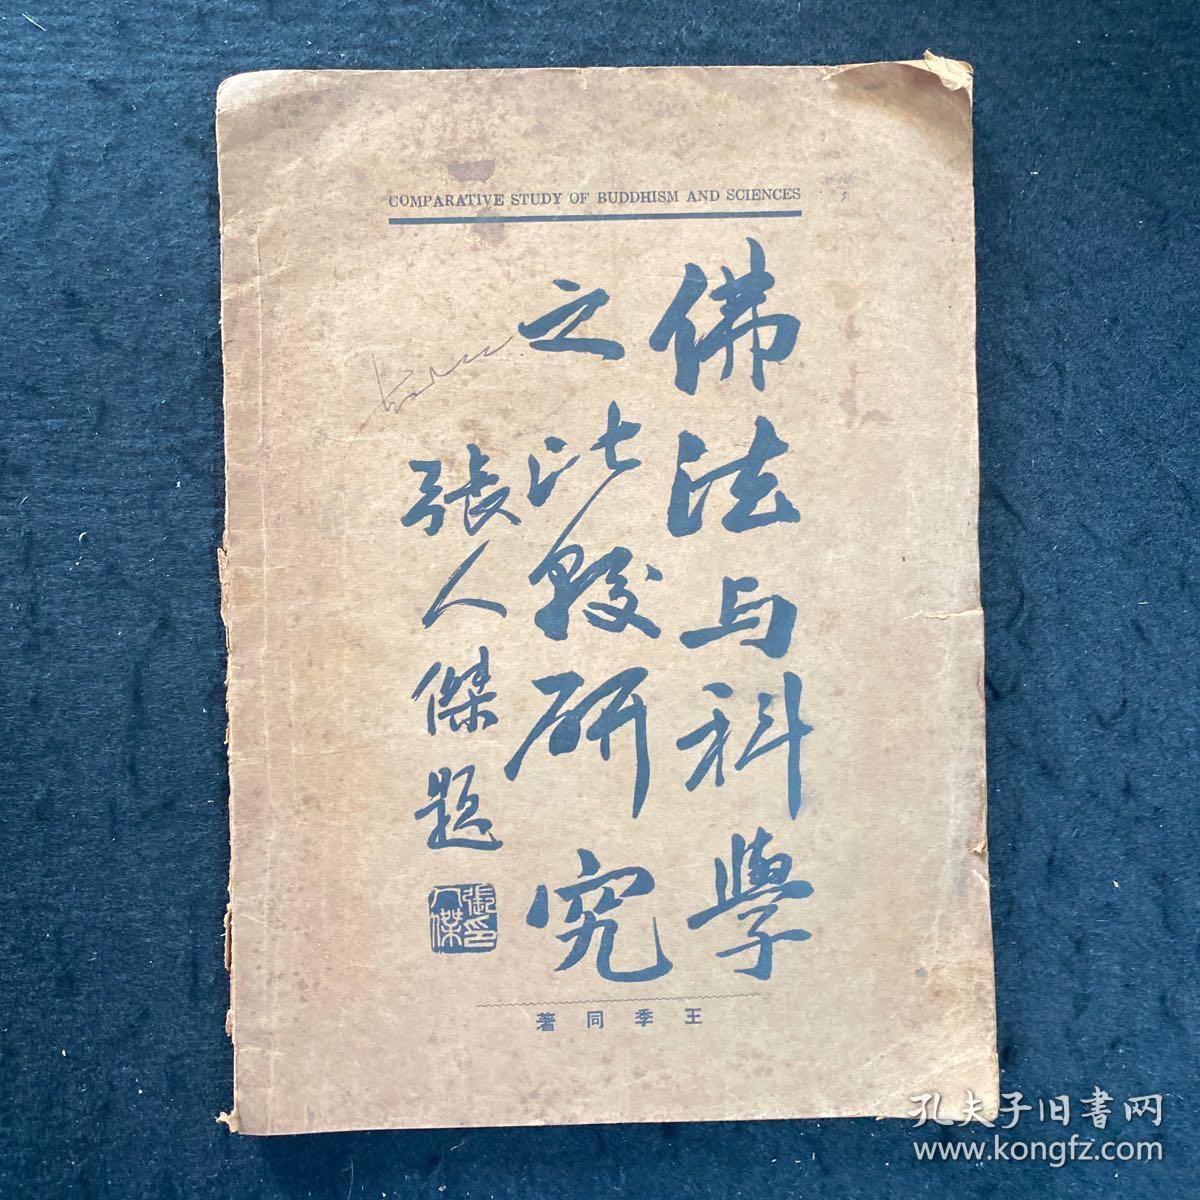 COMPARATIVE STUDY OF BUDDHISM AND SCIENCES
佛法与科學
之比較研究
張人傑題
張人傑印
王季同著
孔夫子旧書网
www.kongfz.com